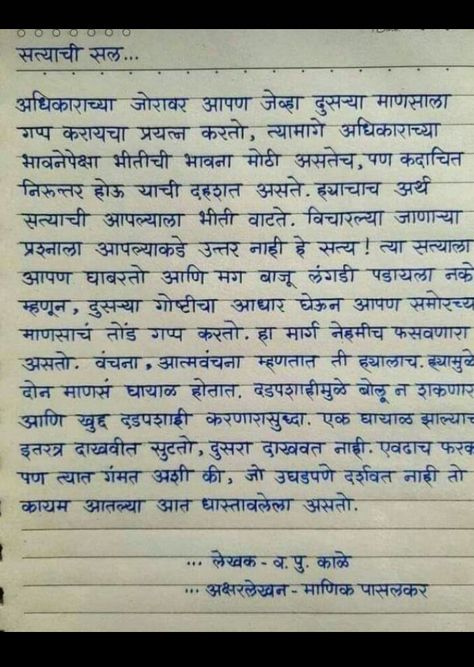 सत्याची सल...
अधिकाराच्या जोरावर आपण जेव्हा दुसऱ्या माणसाला
गप्प करायचा प्रयत्न करतो, त्यामागे अधिकाराच्या
भावनेपेक्षा भीतीची भावना मोठी असतेच, पण कदाचित
निरुत्तर होऊ याची दहशत असते. ह्याचाच अर्थ
सत्याची आपल्याला भीती वाटते. विचारल्या जाणाऱ्या
प्रश्नाला आपल्याकडे उत्तर नाही हे सत्य! त्या सत्याला
आपण घाबरतो आणि मग बाजू लंगडी पडायला नको
म्हणून, दुसऱ्या गोष्टीचा आधार घेऊन आपण
माणसाचं तोंड गप्प करतो. हा मार्ग नेहमीच फसवणारा
असतो. वंचना, आत्मवंचना म्हणतात ती ह्यालाच. ह्यामुळे
दोन माणसं घायाळ होतात. दडपशाहीमुळे बोलू न
आणि खुद्द दडपशाही करणारासुध्दा. एक घायाळ
इतरत्र दाखवीत सुटतो, दुसरा दाखवत नाही. एवढाच फरक
पण त्यात गंमत अशी की, जो उघडपणे दर्शवत नाही तो
कायम आतल्या आत धास्तावलेला असतो.
... लेखक - व. पु. काळे
... अक्षरलेखन - माणिक पासलकर